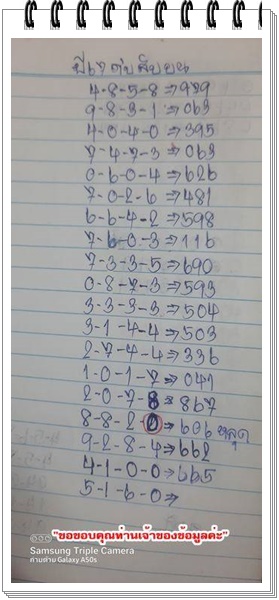 ปี67 ต่บสิบบน
4-8-5-8⇒979
9-8-3-1⇒063
4-0-4-0⇒395
7-4-7-3⇒063
0-6-0-4⇒626
7-0-2-6⇒481
6-6-4-2⇒598
7-6-0-3⇒116
7-3-3-5⇒690
0-8-7-3⇒593
3-3-3-3⇒504
3-1-4-4⇒503
2-7-4-4⇒336
1-0-1-7⇒041
2-0-7-8⇒867
8-8-2-0⇒696 หลุด
9-2-8-4⇒662
4-1-0-0⇒665
5-1-6-0⇒
"ขอขอบคุณท่านเจ้าของข้อมูลค่ะ"
Samsung Triple Camera
ถ่ายด้วย Galaxy A50s